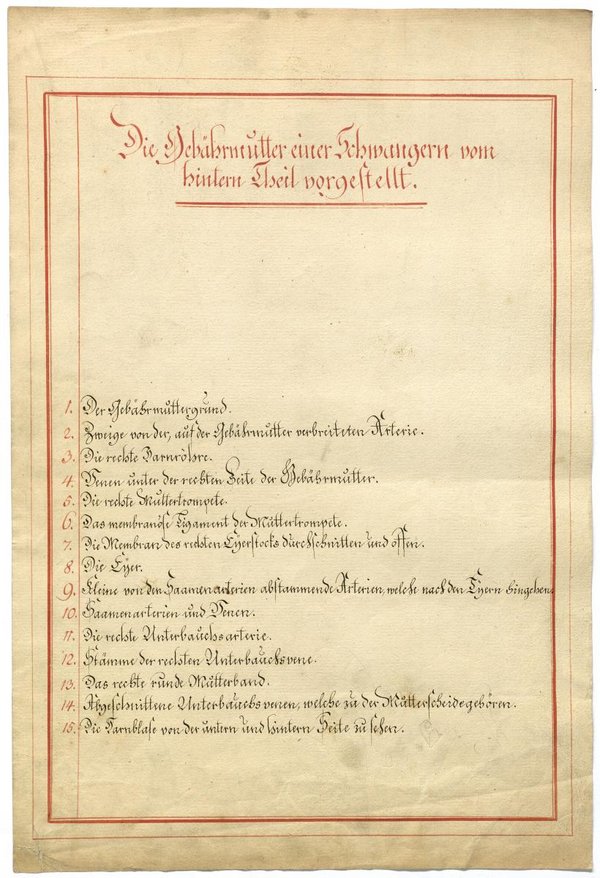 Die Gebährmutter einer Schwangern vom
hintern Theil vorgestellt.
1. Der Gebährmuttergrund.
2. Zweige von der, auf der Gebährmutter verbreiteten Arterie.
3. Die rechte Harnröhre.
4. Venen unter der rechten Seite der Gebährmutter.
5. Die rechte Muttertrompete.
6. Das membranöse Ligament der Muttertrompete.
7. Die Membran des rechten Eyerstocks durchschnitten und offen.
8. Die Eyer.
9. Kleine von den Saamenarterien abstammende Arterien, welche nach den Eyern hingehen.
10. Saamenarterien und Venen.
11. Die rechte Unterbauchsarterie.
12. Stämme der rechten Unterbauchsvene.
13. Das rechte runde Mutterband.
14. Abgeschnittene Unterbauchsvenen, welche zu der Mutterscheide gehören.
15. Die Harnblase von der untern und hintern Seite zu sehen.